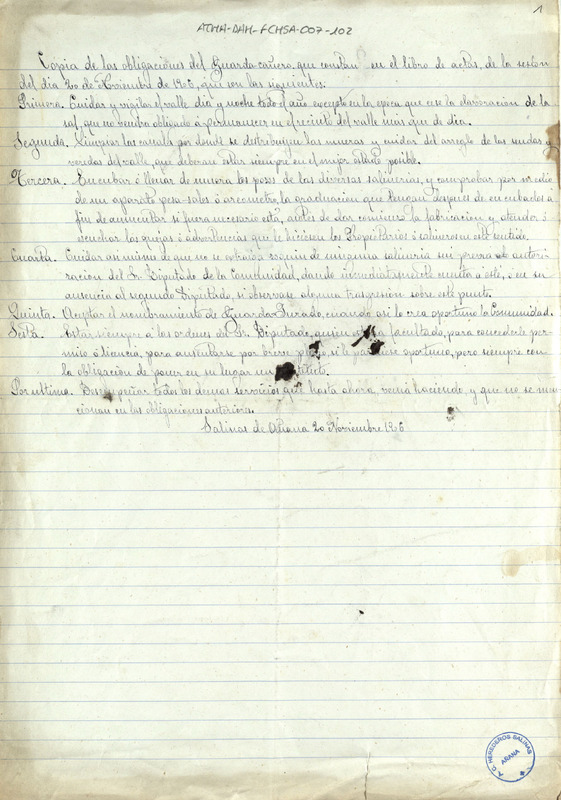 ATHA-DAH-FCHSA-007-102
1
Copia de las obligaciones del Guarda-cañero, que constan en el libro de actas, de la sesion
del dia 20 de Noviembre de 1906, que son las siguientes:
Primera. Cuidar y vigilar el valle dia y noche todo el año excepto en la epoca que en la elavoracion de la
sal, que no vendra obligado á permanecer en el recinto del valle más que de dia.
Segunda. Limpiar los canales por donde se distribuyen las mueras y cuidar del arreglo de las sendas y
veredas del valle, que deberan estar siempre en el mejor estado posible.
Tercera. Encubar ó llenar de muera los pozos de las diversas salinerias, y comprobar por medio
de un aparato pesa-sales ó areometro, la graduacion que tengan despues de encubados a
fin de aumentar si fuera necesario esta, antes de dar comienzo la fabricacion y atender ó
escuchar las quejas ó advertencias que le hicieran los Propietarios ó salineros en este sentido.
Cuarta. Cuidar asi mismo de que no se extraiga de ninguna salineria sin previa autori-
zacion del Sr. Diputado de la Comunidad, dando inmediatamente cuenta a este, ó en su
ausencia al segundo Diputado, si observase alguna trasgresion sobre este punto.
Quinta. Aceptar el nombramiento de Guarda Jurado, cuando asi lo crea oportuno la Comunidad.
Sesta. Estar siempre á las ordenes del Sr. Diputado, quien facultado, para concederle per-
miso ó licencia, para ausentarse por breve plazo, si lo oportuno, pero siempre con
la obligacion de poner en su lugar un
Por ultima. Desempeñar todos los demas servicios que hasta ahora, venia haciendo, y que no se men-
cionan en las obligaciones anteriores.
Salinas de Añana 20 Noviembre 1906
A. C. HEREDEROS SALINAS
AÑANA